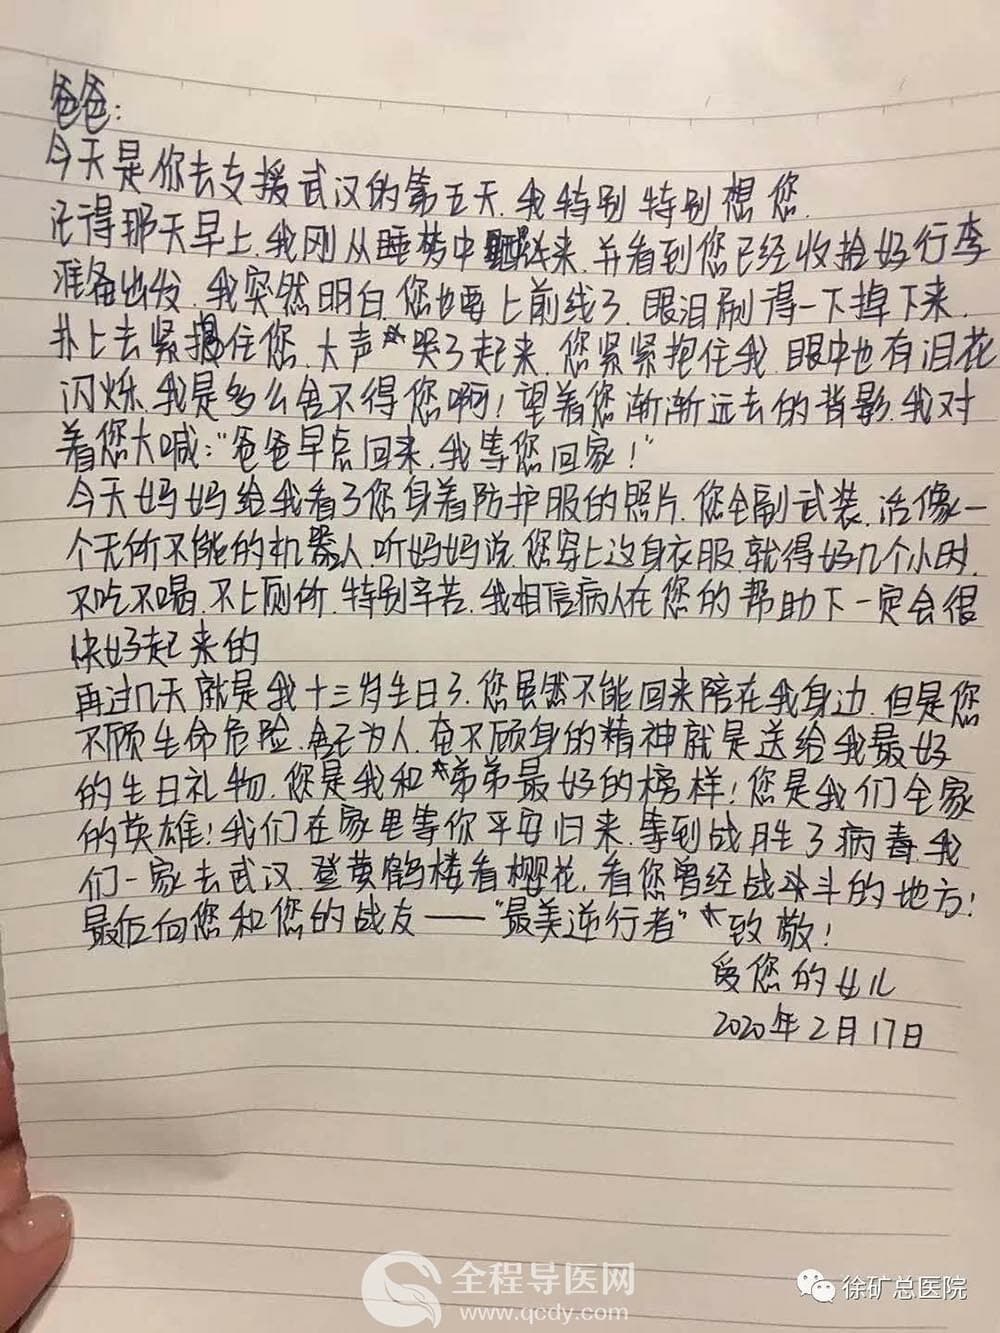 爸爸：
今天是你去支援武汉的第五天，我特别特别想您，
记得那天早上，我刚从睡梦中醒来，并看到您已经收拾好行李
准备出发，我突然明白，您也要上前线了，眼泪刷得一下掉下来，
扑上去紧抱住您，大声哭了起来，您紧紧抱住我，眼中也有泪花
闪烁，我是多么舍不得您啊！望着您渐渐远去的背影，我对
着您大喊：“爸爸早点回来，我等您回家！”
今天妈妈给我看了您身着防护服的照片，您全副武装，活像一
个无所不能的机器人，听妈妈说，您穿上这身衣服，就得好几个小时，
不吃不喝，不上厕所，特别辛苦，我相信病人在您的帮助下一定会很
快好起来的
再过几天就是我十三岁生日了，您虽然不能回来陪在我身边，但是您
不顾生命危险，舍己为人，奋不顾身的精神就是送给我最好
的生日礼物，您是我和弟弟最好的榜样！您是我们全家
的英雄！我们在家里等你平安归来，等到战胜了病毒，我
们一家去武汉，登黄鹤楼看樱花，看您曾经战斗的地方！
最后向您和您的战友——“最美逆行者”致敬！
爱您的女儿
2020年2月17日
全程导医网
www.qcdy.com
徐矿总医院